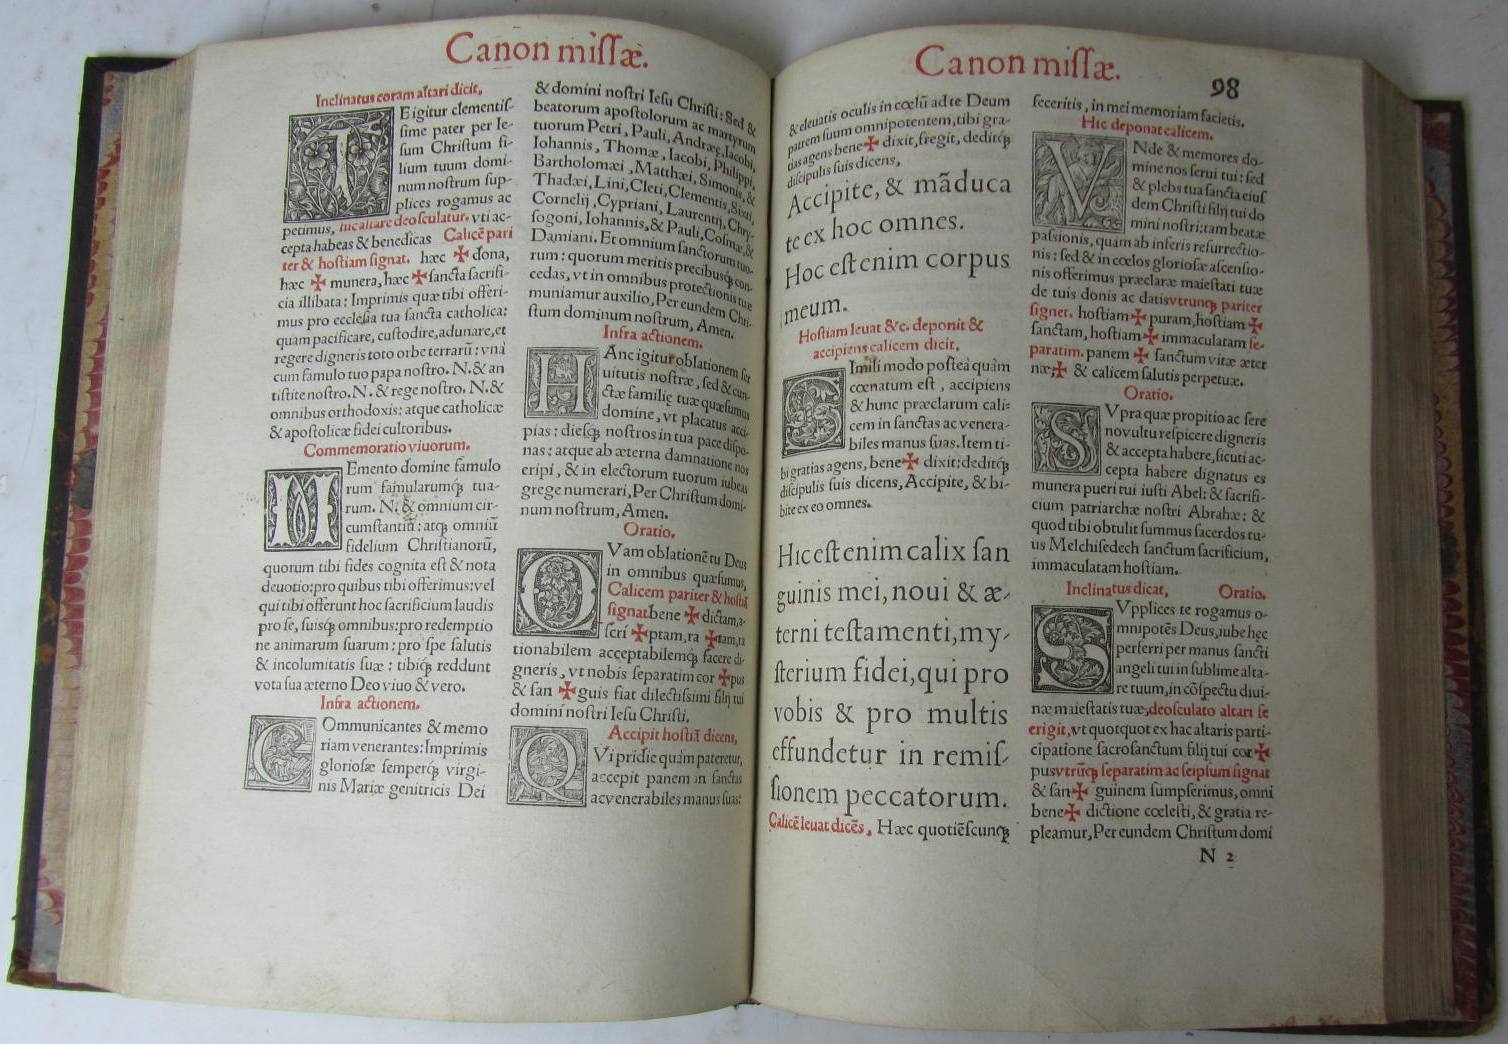 Canon missæ.
Inclinatus coram altari dicit,
TE igitur clementiſ-
ſime pater per Ie-
ſum Chriſtum fi-
lium tuum domi-
num noſtrum ſup-
plices rogamus ac
petimus, hic altare deoſculatur. vti ac-
cepta habeas & benedicas Calicē pari
ter & hoſtiam ſignat. hæc ✠ dona,
hæc ✠ munera, hæc ✠ ſancta ſacrifi-
cia illibata: Imprimis quæ tibi offeri-
mus pro eccleſia tua ſancta catholica:
quam pacificare, cuſtodire, adunare, et
regere digneris toto orbe terrarū: vna
cum famulo tuo papa noſtro. N. & an
tiſtite noſtro. N. & rege noſtro. N. &
omnibus orthodoxis: atque catholicæ
& apoſtolicæ fidei cultoribus.
Commemoratio viuorum.
MEmento domine famulo
rum famularumq́; tua-
rum. N. & omnium cir-
cumſtantiū: atq́; omniū
fidelium Chriſtianorū,
quorum tibi fides cognita eſt & nota
deuotio: pro quibus tibi offerimus: vel
qui tibi offerunt hoc ſacrificium laudis
pro ſe, ſuiſq́; omnibus: pro redemptio
ne animarum ſuarum: pro ſpe ſalutis
& incolumitatis ſuæ: tibiq́; reddunt
vota ſua æterno Deo viuo & vero.
Infra actionem.
COmmunicantes & memo
riam venerantes: Imprimis
glorioſæ ſemperq́; virgi-
nis Mariæ genitricis Dei
& domini noſtri Ieſu Chriſti: Sed &
beatorum apoſtolorum ac martyrum
tuorum Petri, Pauli, Andreæ, Iacobi,
Iohannis, Thomæ, Iacobi, Philippi,
Bartholomæi, Matthæi, Simonis, &
Thadæi, Lini, Cleti, Clementis, Sixti,
Cornelij, Cypriani, Laurentij, Chry-
ſogoni, Iohannis, & Pauli, Coſmæ, &
Damiani. Et omnium ſanctorum tuo-
rum: quorum meritis precibuſq́; con-
cedas, vt in omnibus protectionis tuæ
muniamur auxilio, Per eundem Chri-
ſtum dominum noſtrum, Amen.
Infra actionem.
HAnc igitur oblationem ſer
uitutis noſtræ, ſed & cun-
ctæ familię tuæ quæſumus
domine, vt placatus acci-
pias: dieſq́; noſtros in tua pace diſpo-
nas: atque ab æterna damnatione nos
eripi, & in electorum tuorum iubeas
grege numerari, Per Chriſtum domi-
num noſtrum, Amen.
Oratio.
QVam oblationē tu Deus
in omnibus quæſumus,
Calicem pariter & hoſtiā
ſignat bene ✠ dictam, a-
ſcri ✠ ptam, ra ✠ tam, ra
tionabilem acceptabilemq́; facere di-
gneris, vt nobis ſeparatim cor ✠ pus
& ſan ✠ guis fiat dilectiſsimi filij tui
domini noſtri Ieſu Chriſti.
Accipit hoſtiā dicens,
QVi pridie quàm pateretur,
accepit panem in ſanctas
ac venerabiles manus ſuas:
Canon missæ.
98
& eleuatis oculis in cœlū ad te Deum
patrem ſuum omnipotentem, tibi gra-
tias agens bene ✠ dixit, fregit, deditq́;
diſcipulis ſuis dicens,
Accipite, & māduca
te ex hoc omnes.
Hoc eſt enim corpus
meum.
Hoſtiam leuat &c. deponit &
accipiens calicem dicit,
SImili modo poſteà quàm
cœnatum eſt, accipiens
& hunc præclarum cali-
cem in ſanctas ac venera-
biles manus ſuas. Item ti-
bi gratias agens, bene ✠ dixit: deditq́;
diſcipulis ſuis dicens, Accipite, & bi-
bite ex eo omnes.
Hic eſt enim calix ſan
guinis mei, noui & æ-
terni teſtamenti, my-
ſterium fidei, qui pro
vobis & pro multis
effundetur in remiſ-
ſionem peccatorum.
Calicē leuat dicēs, Hæc quotiēſcunq́;
feceritis, in mei memoriam facietis.
Hic deponat calicem.
VNde & memores do-
mine nos ſerui tui: ſed
& plebs tua ſancta eiuſ
dem Chriſti filij tui do
mini noſtri: tam beatæ
paſsionis, quam ab inferis reſurrectio-
nis: ſed & in cœlos glorioſæ aſcenſio-
nis offerimus præclaræ maieſtati tuæ
de tuis donis ac datis vtrunq́; pariter
ſignet. hoſtiam ✠ puram, hoſtiam ✠
ſanctam, hoſtiam ✠ immaculatam ſe-
paratim. panem ✠ ſanctum vitæ æter
næ, ✠ & calicem ſalutis perpetuæ.
Oratio.
SVpra quæ propitio ac ſere
no vultu reſpicere digneris
& accepta habere, ſicuti ac-
cepta habere dignatus es
munera pueri tui iuſti Abel: & ſacrifi-
cium patriarchæ noſtri Abrahæ: &
quod tibi obtulit ſummus ſacerdos tu-
us Melchiſedech ſanctum ſacrificium,
immaculatam hoſtiam.
Inclinatus dicat, Oratio.
SVpplices te rogamus o-
mnipotēs Deus, iube hęc
perferri per manus ſancti
angeli tui in ſublime alta-
re tuum, in cōſpectu diui-
næ maieſtatis tuæ, deoſculato altari ſe
erigit, vt quotquot ex hac altaris parti-
cipatione ſacroſanctum filij tui cor ✠
pus vtrūq́; ſeparatim ac ſeipſum ſignat
& ſan ✠ guinem ſumpſerimus, omni
bene ✠ dictione cœleſti, & gratia re-
pleamur, Per eundem Chriſtum domi
N 2